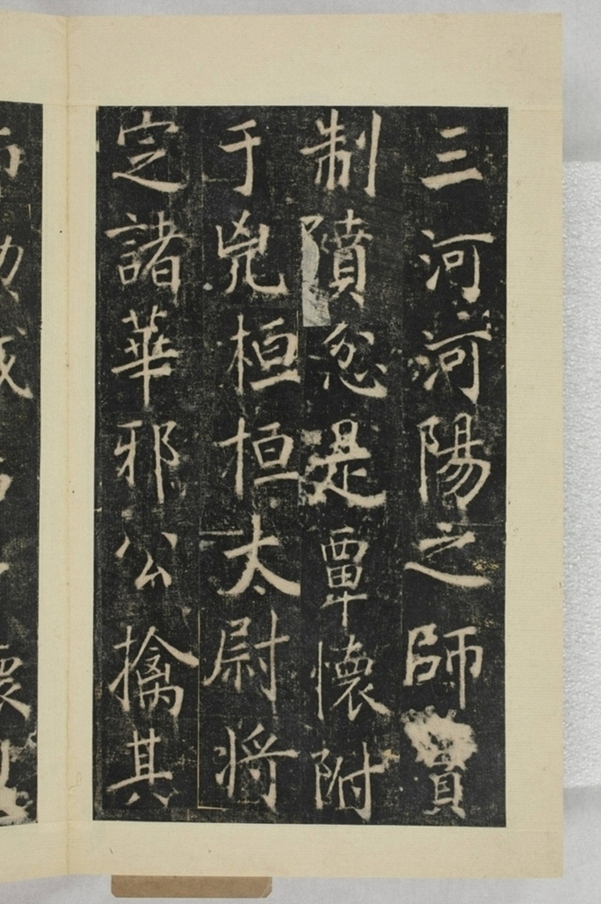 三河河陽之師實
制隤忽是覃懷附
于兇桓桓太尉将
定諸華邪公擒其